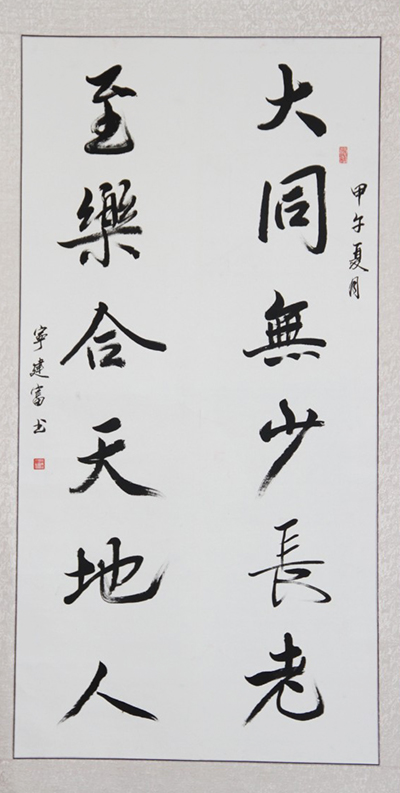 甲午夏月
大同無少長老
至樂合天地人
寧建富书